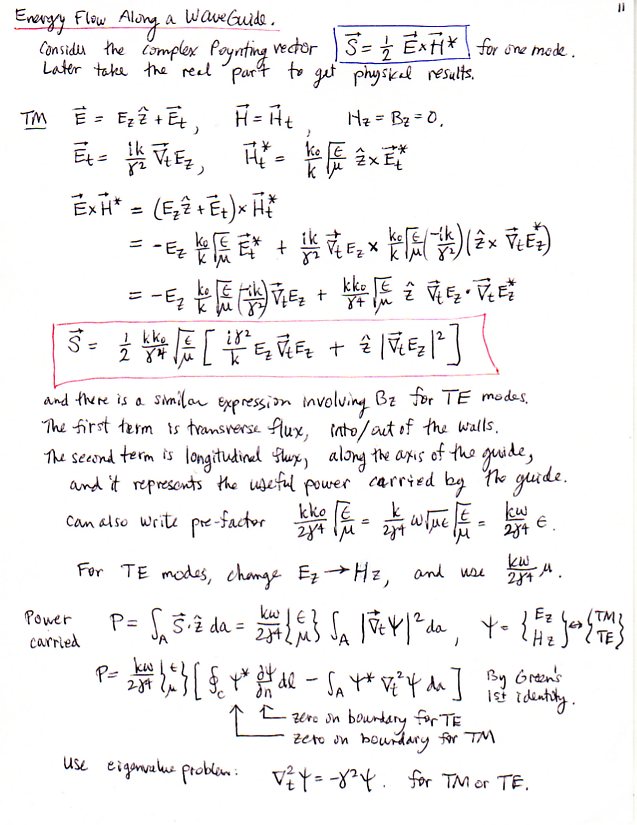 11
Energy Flow Along a WaveGuide.
Consider the complex Poynting vector S⃗ = ½ E⃗×H⃗* for one mode.
Later take the real part to get physical results.
TM E⃗ = E_z ẑ + E⃗_t, H⃗ = H⃗_t, H_z = B_z = 0.
E⃗_t = ik/γ² ∇⃗_t E_z, H⃗_t* = k₀/k √(ε/μ) ẑ × E⃗_t*
E⃗×H⃗* = (E_z ẑ + E⃗_t) × H⃗_t*
= -E_z k₀/k √(ε/μ) E⃗_t* + ik/γ² ∇⃗_t E_z × k₀/k √(ε/μ) (-ik/γ²)(ẑ × ∇⃗_t E_z*)
= -E_z k₀/k √(ε/μ) (-ik/γ²) ∇⃗_t E_z + kk₀/γ⁴ √(ε/μ) ẑ ∇⃗_t E_z · ∇⃗_t E_z*
S⃗ = ½ kk₀/γ⁴ √(ε/μ) [ iγ²/k E_z ∇⃗_t E_z + ẑ |∇⃗_t E_z|² ]
and there is a similar expression involving B_z for TE modes.
The first term is transverse flux, into/out of the walls.
The second term is longitudinal flux, along the axis of the guide,
and it represents the useful power carried by the guide.
Can also write pre-factor kk₀/2γ⁴ √(ε/μ) = k/2γ⁴ ω√(με) √(ε/μ) = kω/2γ⁴ ε.
For TE modes, change E_z → H_z, and use kω/2γ⁴ μ.
Power carried P = ∫_A S⃗·ẑ da = kω/2γ⁴ {ε μ} ∫_A |∇⃗_t Ψ|² da, Ψ = {E_z H_z} ↔ {TM TE}
P = kω/2γ⁴ {ε μ} [ ∮_C Ψ* ∂Ψ/∂n dl - ∫_A Ψ* ∇_t² Ψ da ] By Green's 1st identity.
zero on boundary for TE
zero on boundary for TM
Use eigenvalue problem: ∇_t² Ψ = -γ² Ψ. for TM or TE.